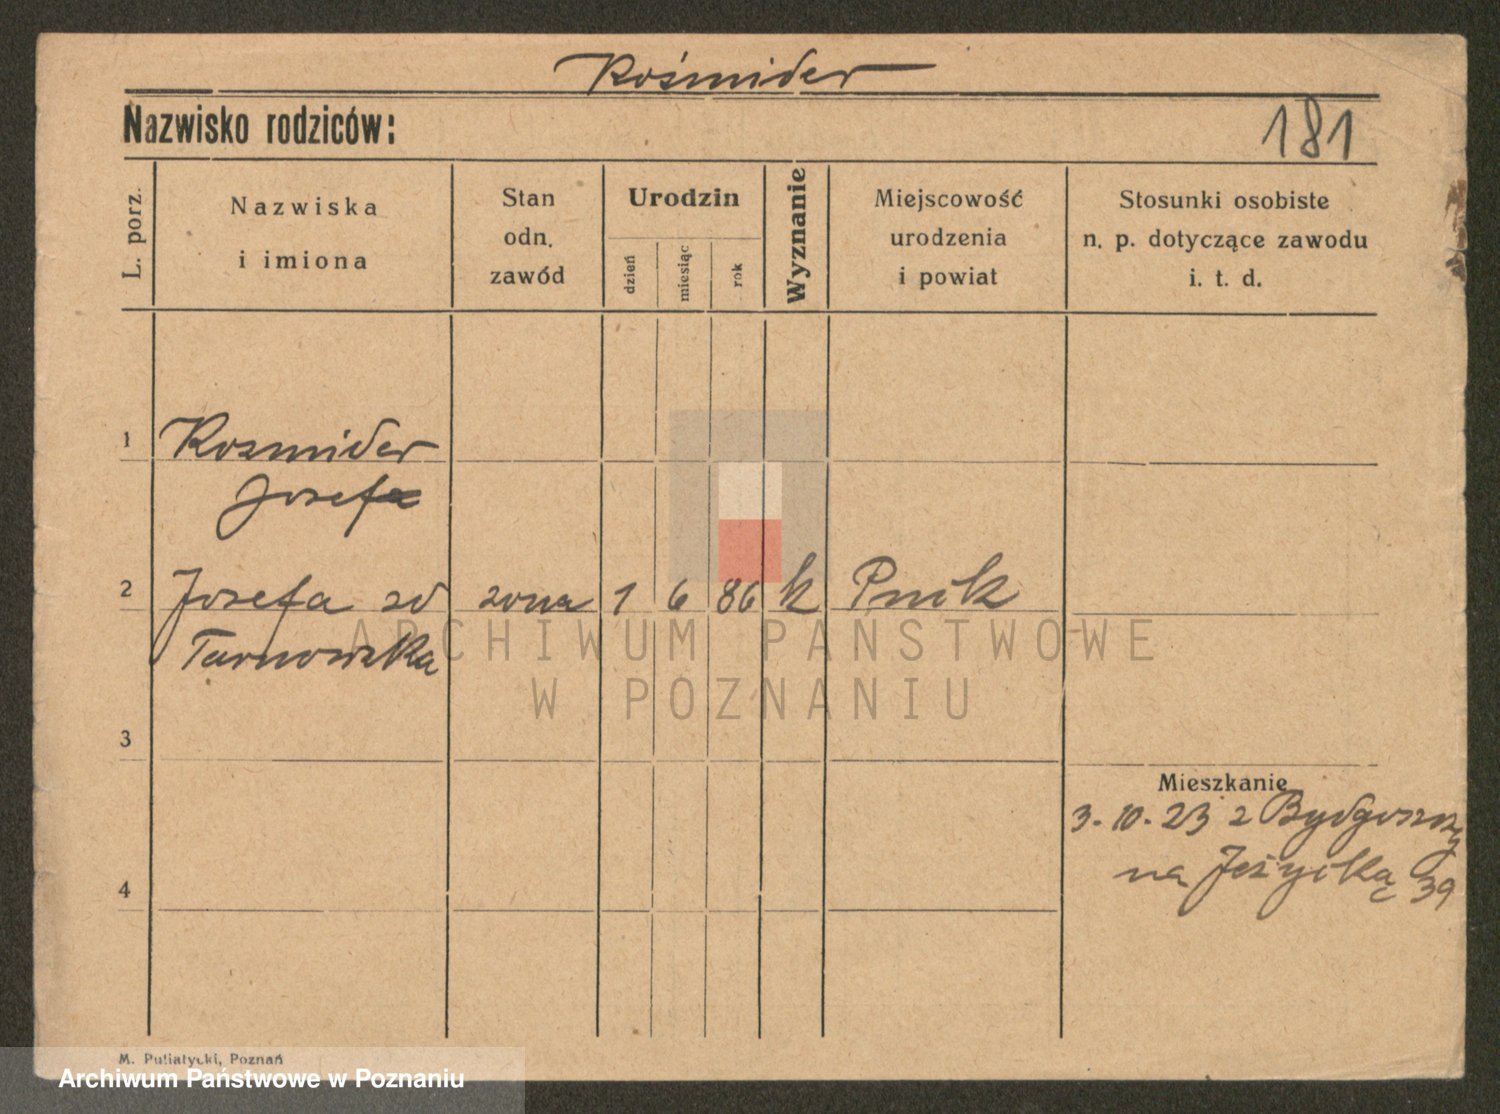 Kośmider
Nazwisko rodziców:
181
L. porz.
Nazwiska
i imiona
Stan
odn.
zawód
Urodzin
dzień
miesiąc
rok
Wyznanie
Miejscowość
urodzenia
i powiat
Stosunki osobiste
n. p. dotyczące zawodu
i. t. d.
1 Kosmider
Josefa
2 Josefa zd zona 1 6 86 k
Turnowska
ARCHIWUM PAŃSTWOWE
W POZNANIU
3
Mieszkanie
3-10-23 z Bydgoszczy
na Jeżycką 39
4
M. Putiatycki, Poznań
Archiwum Państwowe w Poznaniu